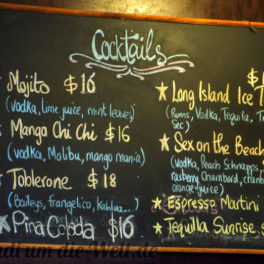 Cocktails
Mojito $16
(vodka, lime juice, mint leaves)
Mango Chi Chi $16
(vodka, Malibu, mango mania)
Toblerone $18
(baileys, frangelico, kahlua...)
Pina Colada $16
$
Long Island Ice T
(Rums, Vodka, Tequila, T
sec)
Sex on the Beach
(Vodka, Peach Schnapps,
rasberry Chambord, cranb
Espresso Martini
Tequilla Sunrise $
um-die-Welt.de